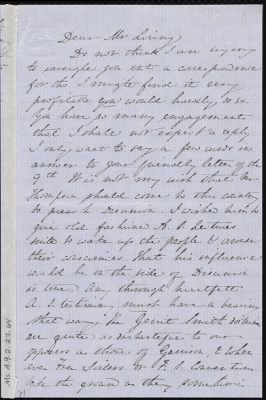 Dear Mr Living
Do not think I am trying
to inveigle you into a correspondence
for tho' I might find it very
profitable you would hardly do so.
You have so many engagements
that I shall not expect a reply
I only want to say a few words in
answer to your friendly letter of the
9th. It is not my wish that Mr
Thompson should come to this country
to preach Disunion. I wished him to
give old fashioned A. S. Lectures
to wake up the people & arouse
their consciences. That his influence
would be on the side of Disunion
is true. Any thorough heartfelt
A. S. lecturing must have a bearing
that way. The Gerrit Smith
are quite as distasteful to our
opposers as those of Garrison, & when
even Free Soilers or F. S. Conventions
the ground as they sometimes
Ms. A. 9. 2. 27. 64